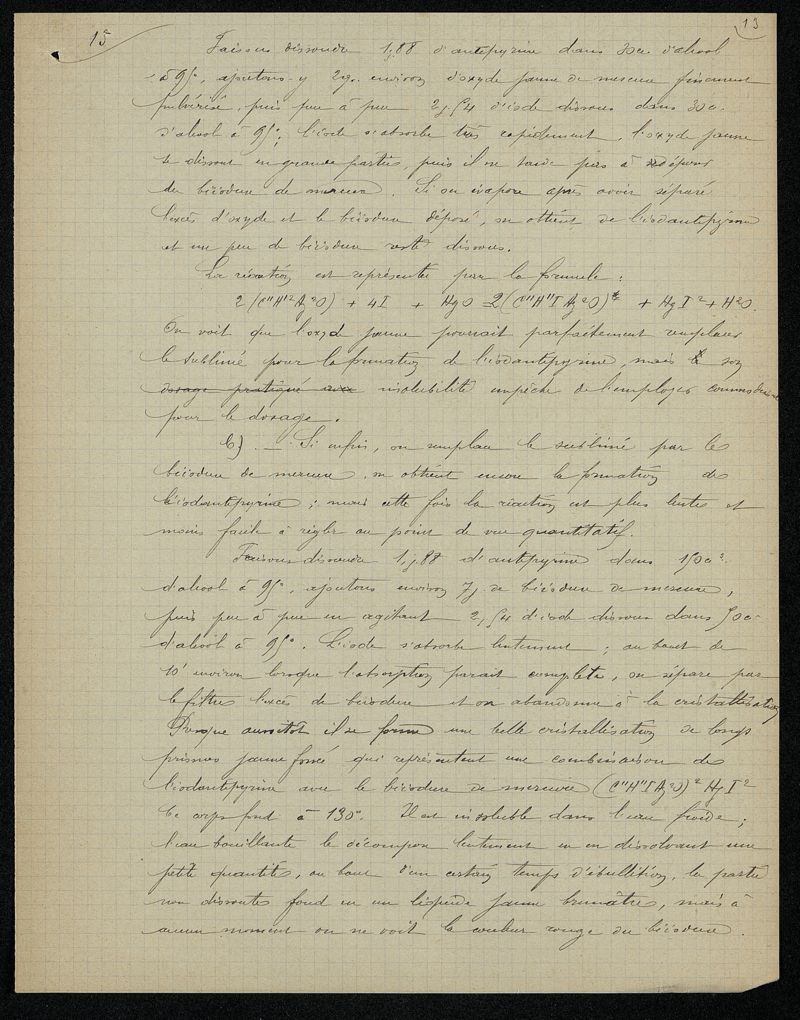 13
15
Faisons dissoudre 1g,88 d'antipyrine dans 30cc d'alcool
à 95°, ajoutons-y 2g. environ d'oxyde jaune de mercure finement
pulvérisé, puis peu à peu 2g,54 d'iode dissous dans 30cc
d'alcool à 95°; l'iode s'absorbe très rapidement, l'oxyde jaune
se dissout en grande partie, puis il ne tarde pas à se déposer
du biiodure de mercure. Si on évapore après avoir séparé
l'excès d'oxyde et le biiodure déposé, on obtient de l'iodantipyrine
et un peu de biiodure resté dissous.
La réaction est représentée par la formule :
2 (C11H12Az2O) + 4I + HgO 2(C11H11IAz2O) + HgI2 + H2O.
On voit que l'oxyde jaune pourrait parfaitement remplacer
le sublimé pour la formation de l'iodantipyrine, mais son
dosage pratiqué avec insolubilité empêche de l'employer commodément
pour le dosage.
C) — Si enfin, on remplace le sublimé par le
biiodure de mercure, on obtient encore la formation de
l'iodantipyrine ; mais cette fois la réaction est plus lente et
moins facile à régler au point de vue quantitatif.
Faisons dissoudre 1,g88 d'antipyrine dans 150cc
d'alcool à 95°, ajoutons environ 7g. de biiodure de mercure,
puis peu à peu en agitant 2,54 d'iode dissous dans 50cc
d'alcool à 95°. L'iode s'absorbe lentement ; au bout de
10' environ lorsque l'absorption parait complète, on sépare par
le filtre l'excès de biiodure et on abandonne à la cristallisation
Presque aussitôt il se forme une belle cristallisation de longs
prismes jaune foncé qui représentent une combinaison de
l'iodantipyrine avec le biiodure de mercure (C11H11IAz2O)2 HgI2
Ce corps fond à 130°. Il est insoluble dans l'eau froide ;
l'eau bouillante le décompose lentement en en dissolvant une
petite quantité, au bout d'un certain temps d'ébullition, la partie
non dissoute fond en un liquide jaune brunâtre, mais à
aucun moment on ne voit la couleur rouge du biiodure.